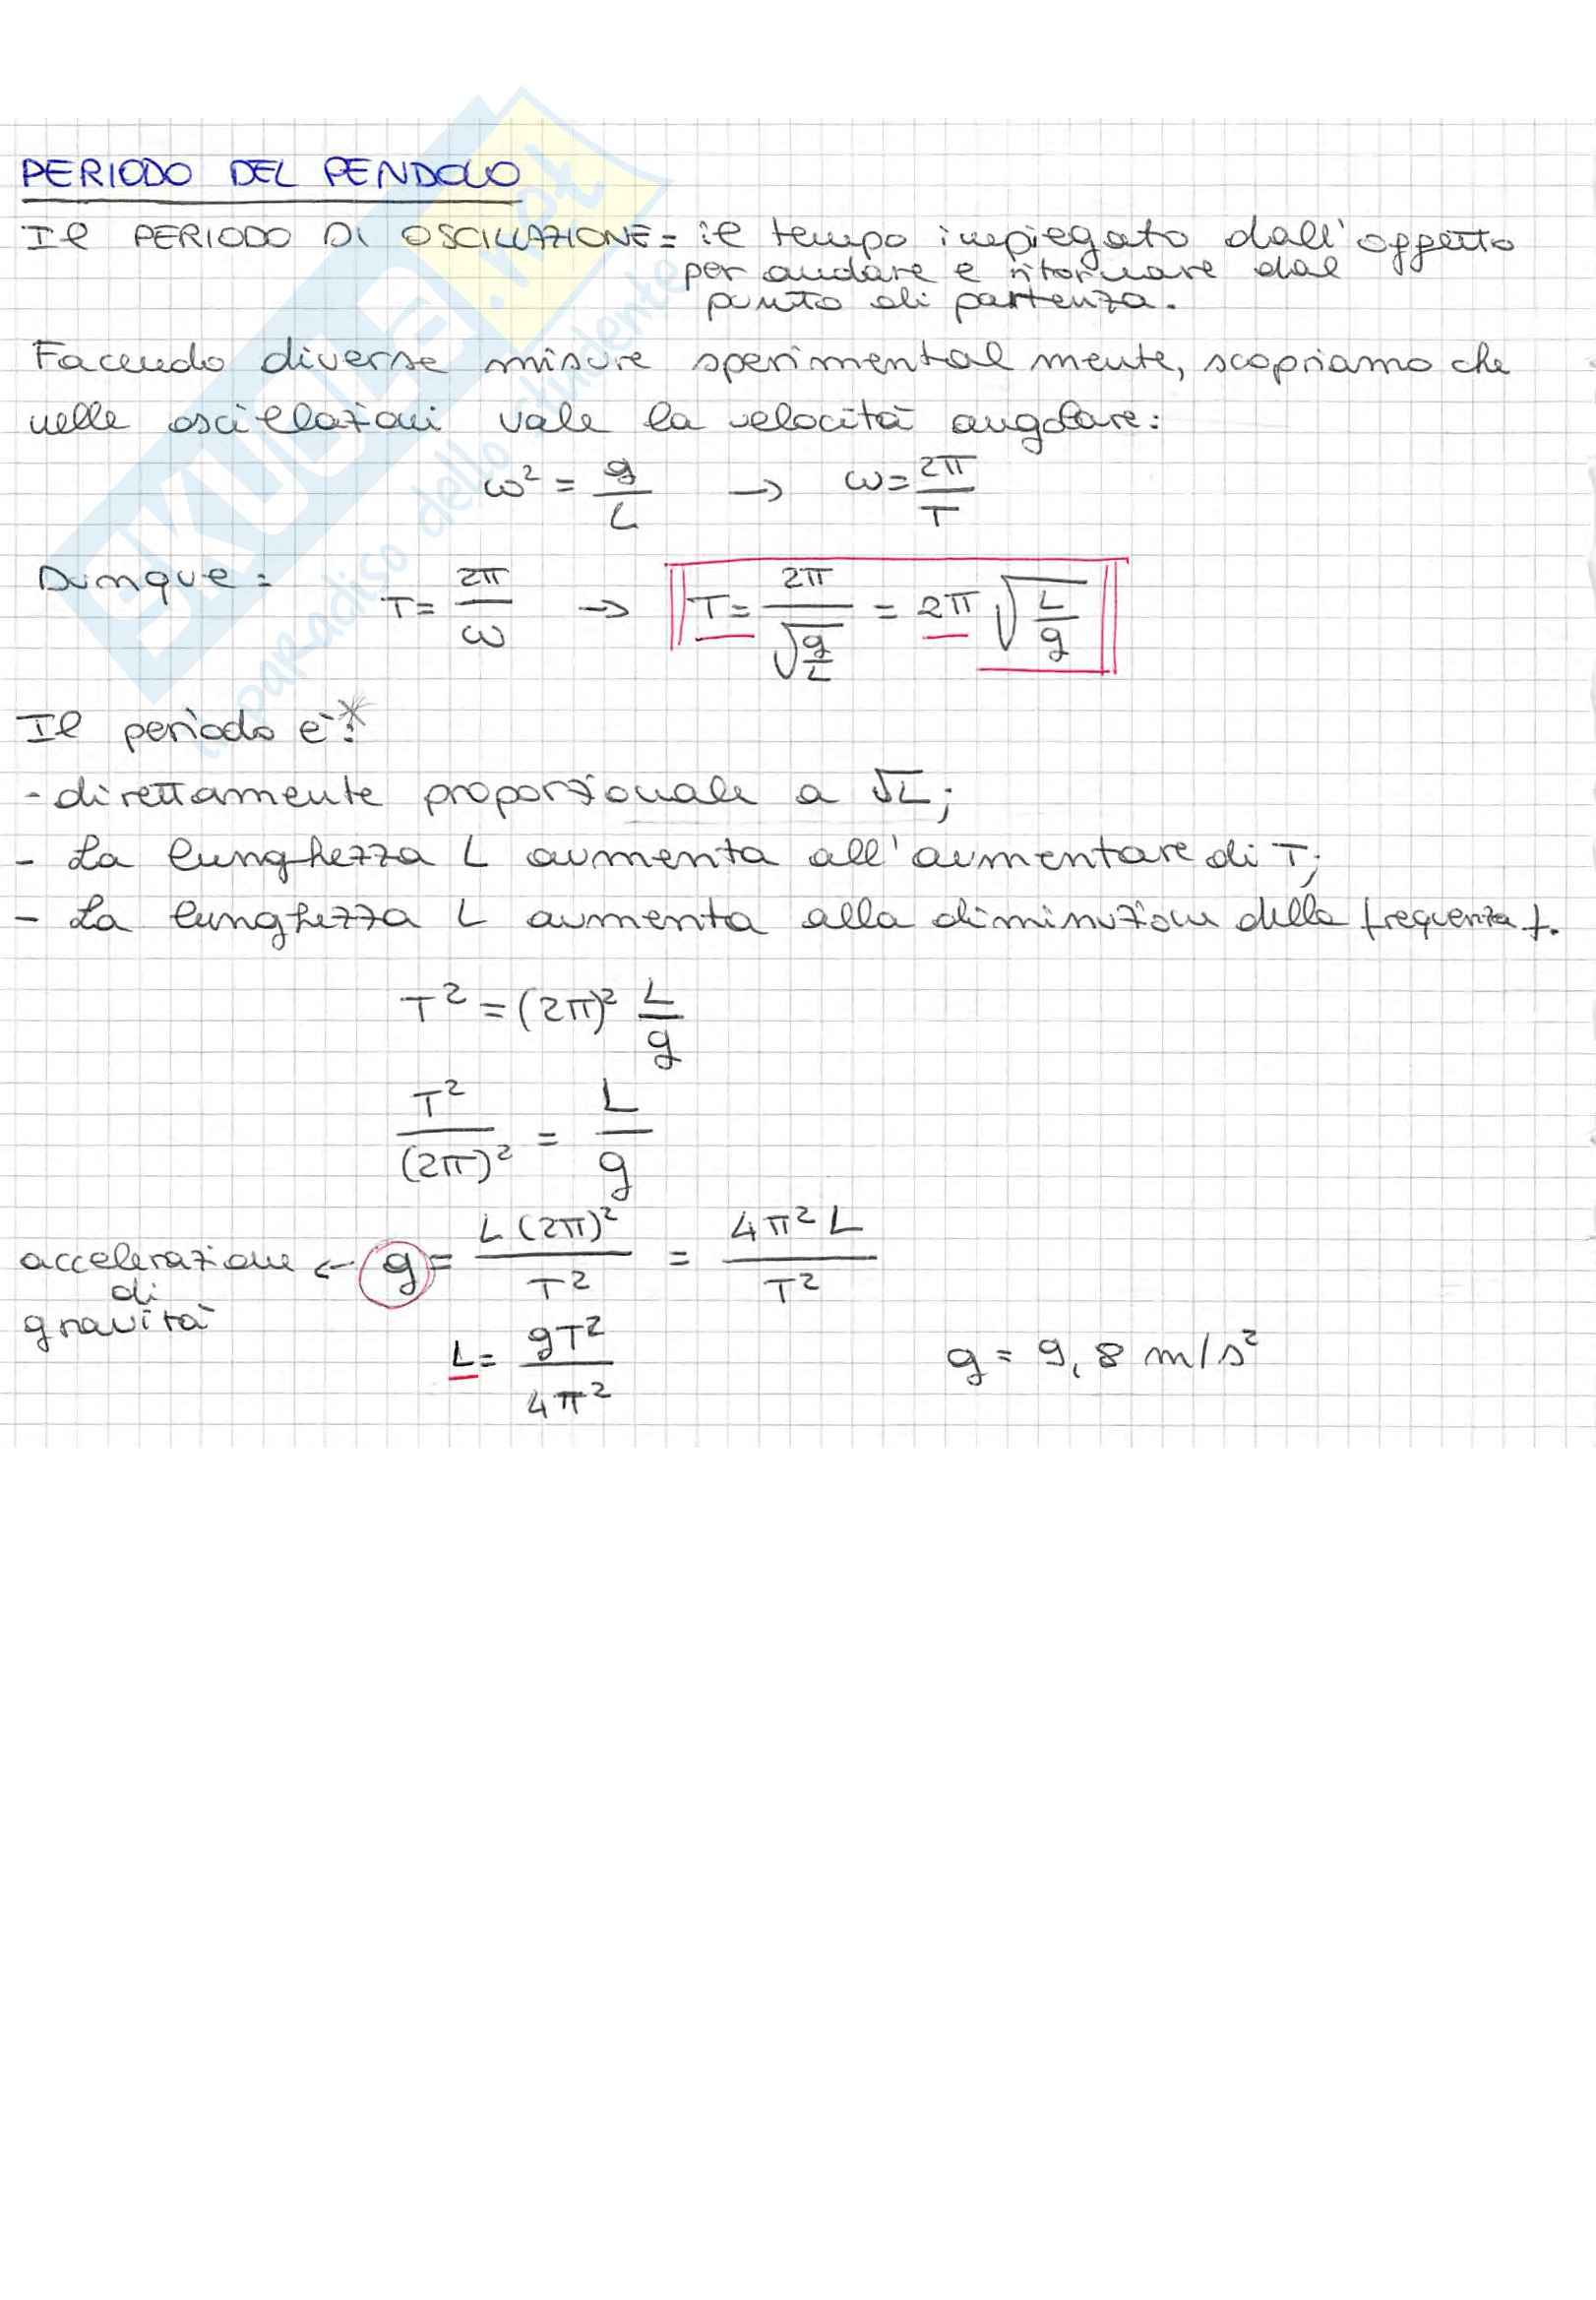 PERIODO DEL PENDOLO
Il PERIODO DI OSCILLAZIONE = il tempo impiegato dall'oggetto
per andare e ritornare dal
punto di partenza.
Facendo diverse misure sperimentalmente, scopriamo che
nelle oscillazioni vale la velocità angolare:
ω² = g/L → ω = 2π/T
Dunque: T = 2π/ω → T = 2π/√(g/L) = 2π √(L/g)
Il periodo è:*
- direttamente proporzionale a √L;
- La lunghezza L aumenta all'aumentare di T;
- La lunghezza L aumenta alla diminuzione della frequenza f.
T² = (2π)² L/g
T²/(2π)² = L/g
accelerazione di gravità ← g = L(2π)²/T² = 4π²L/T²
L = gT²/4π² g = 9,8 m/s²
SKUOLA.net
il paradiso dello studente